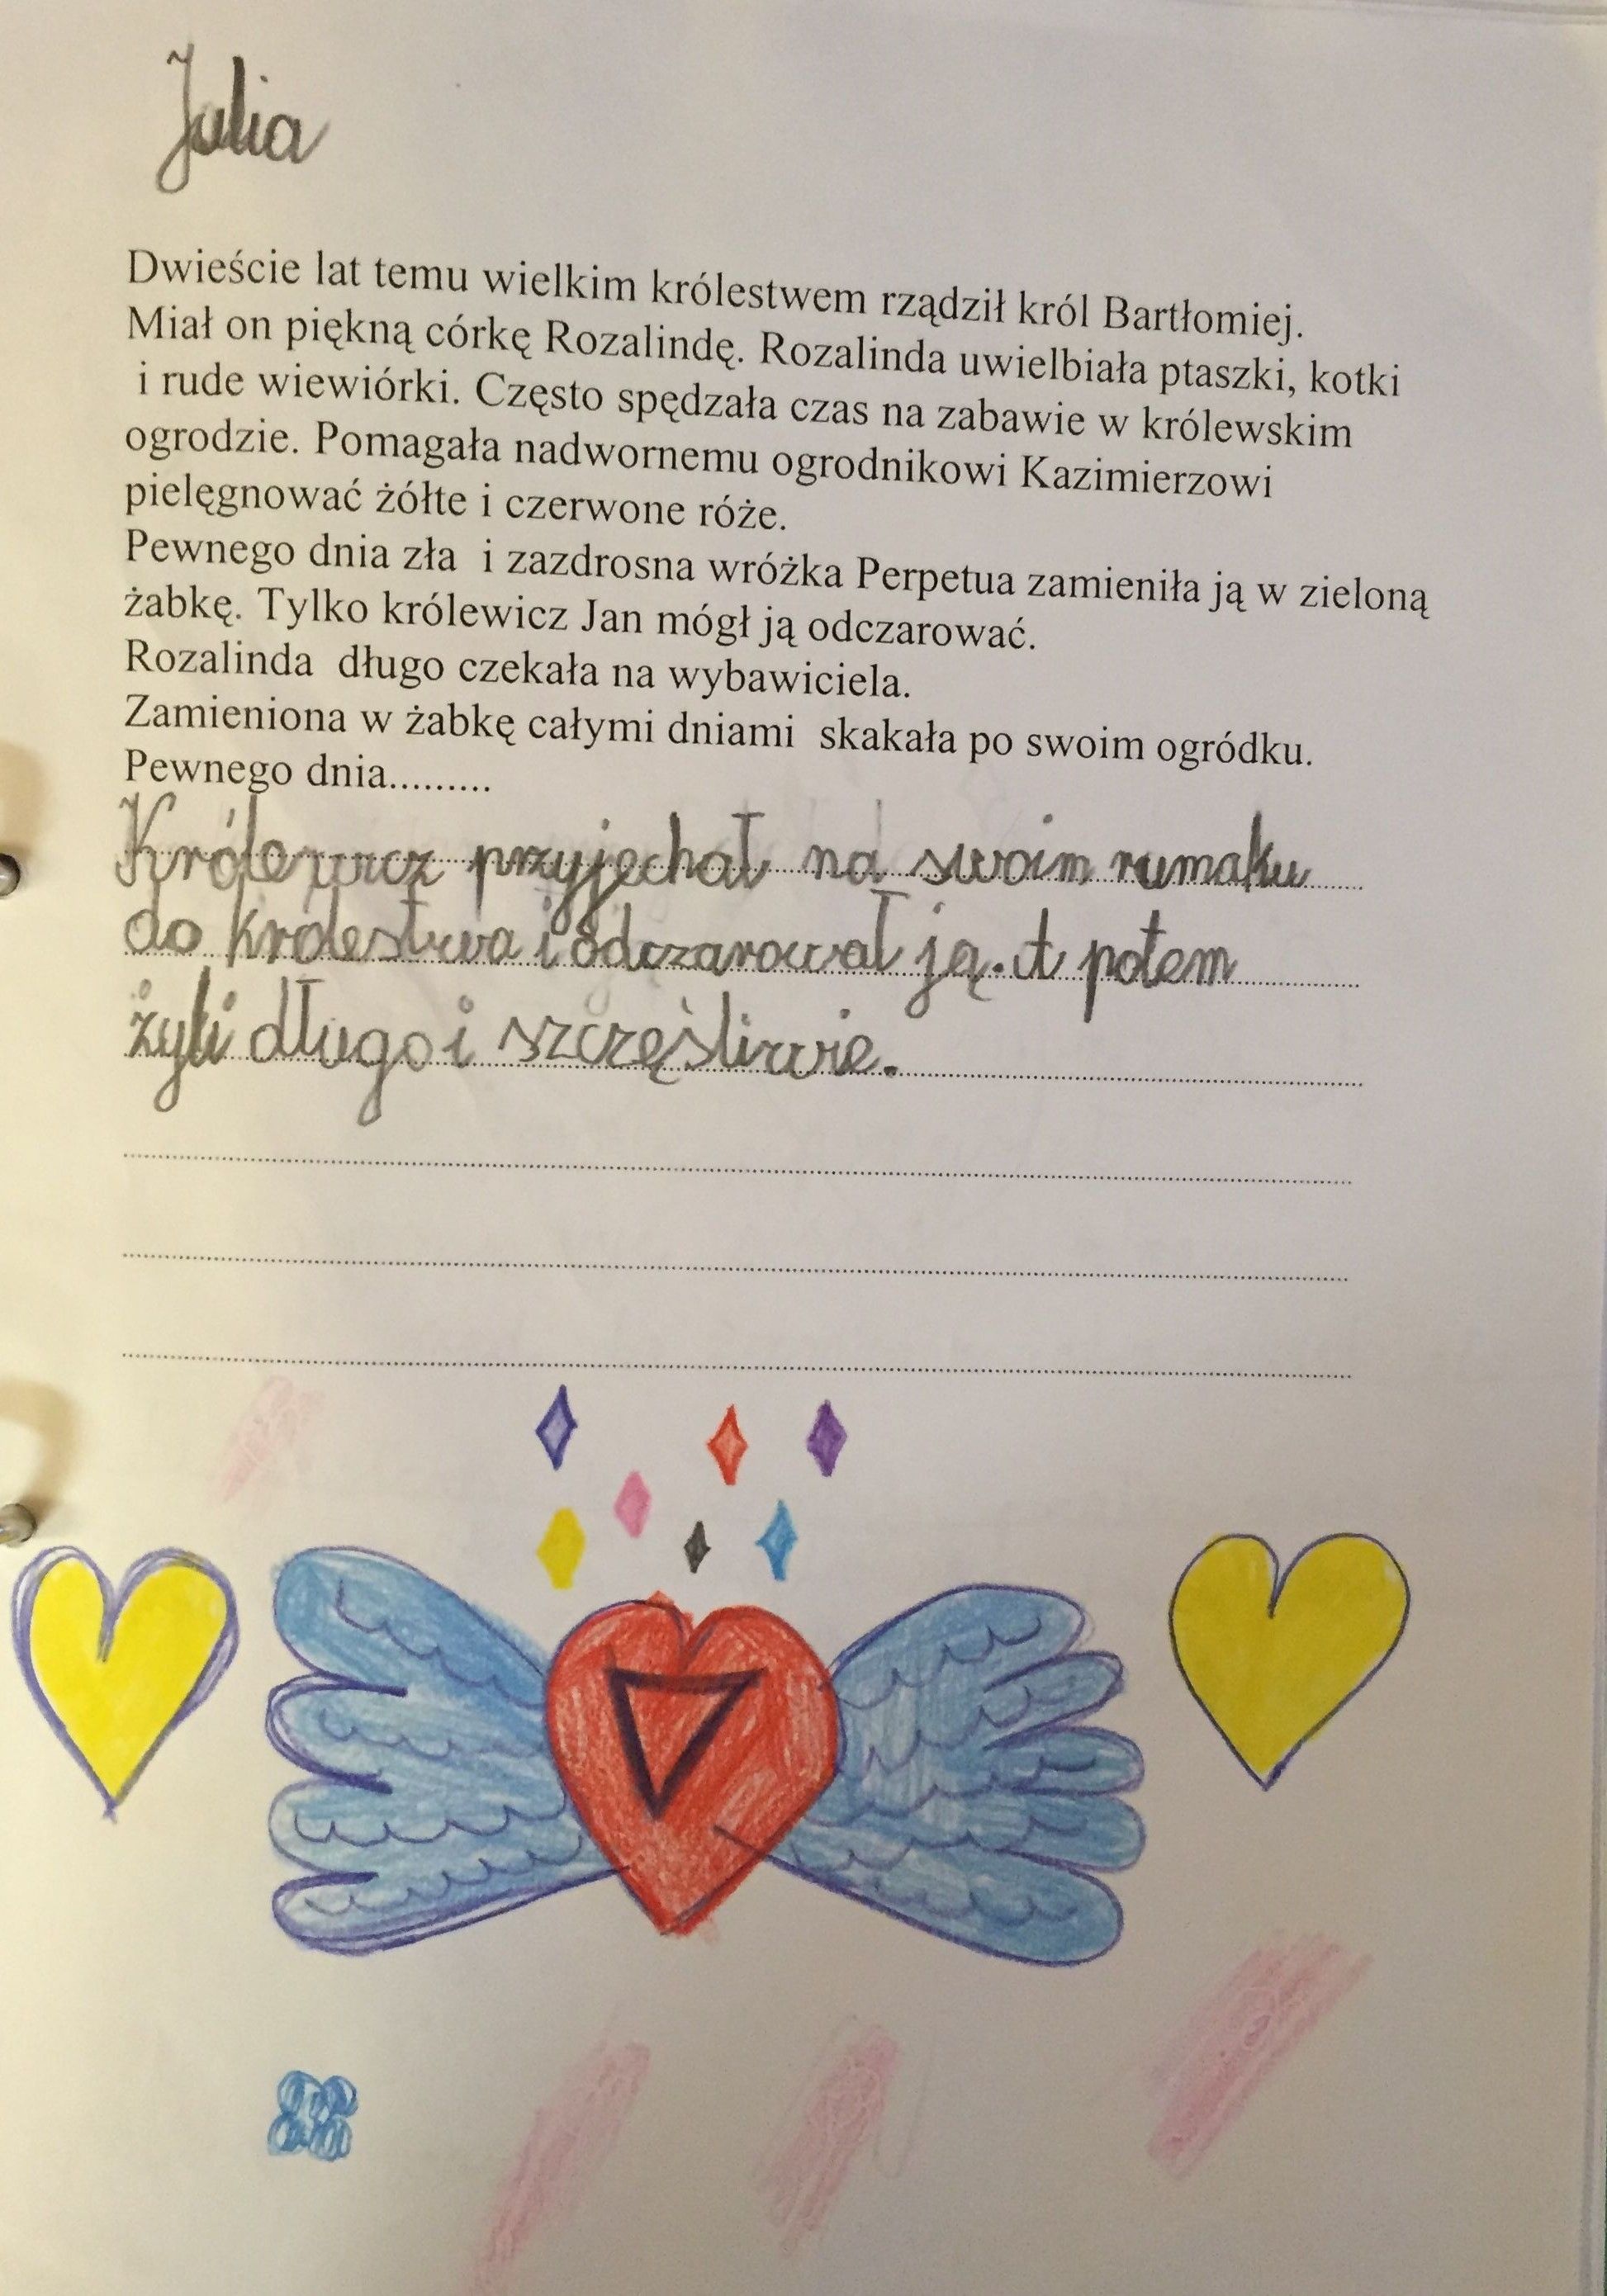 Julia
Dwieście lat temu wielkim królestwem rządził król Bartłomiej.
Miał on piękną córkę Rozalindę. Rozalinda uwielbiała ptaszki, kotki
i rude wiewiórki. Często spędzała czas na zabawie w królewskim
ogrodzie. Pomagała nadwornemu ogrodnikowi Kazimierzowi
pielęgnować żółte i czerwone róże.
Pewnego dnia zła i zazdrosna wróżka Perpetua zamieniła ją w zieloną
żabkę. Tylko królewicz Jan mógł ją odczarować.
Rozalinda długo czekała na wybawiciela.
Zamieniona w żabkę całymi dniami skakała po swoim ogródku.
Pewnego dnia.........
Królewicz przyjechał na swoim rumaku
do królestwa i odczarował ją. A potem
żyli długo i szczęśliwie.